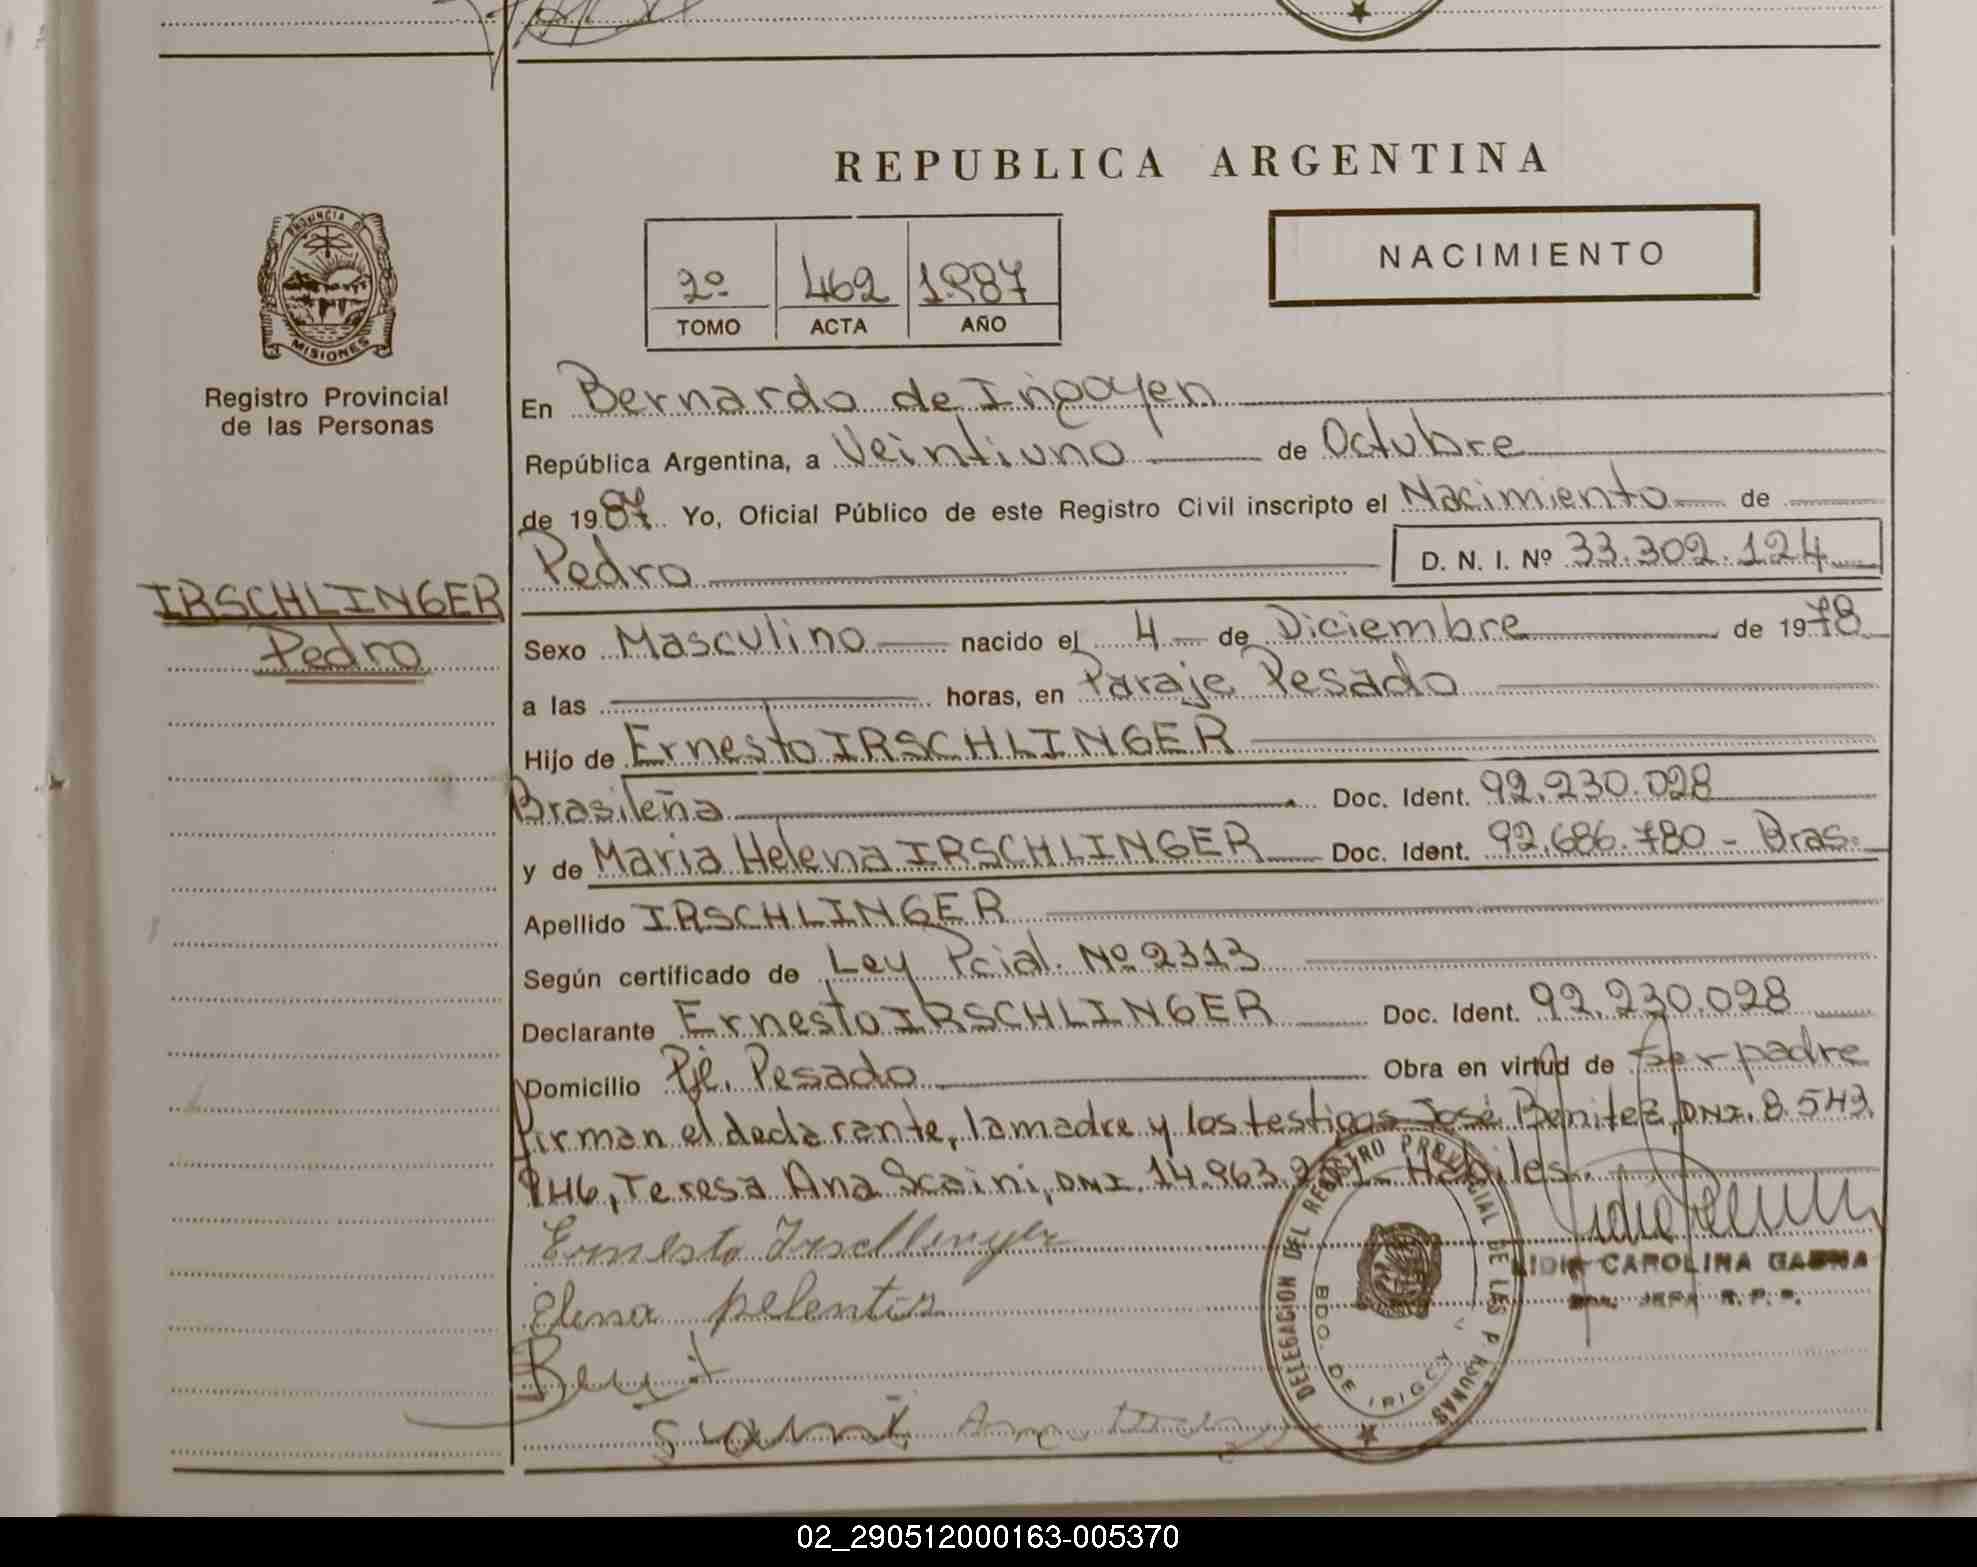 REPUBLICA ARGENTINA
NACIMIENTO
2º 462 1987
TOMO ACTA AÑO
PROVINCIA DE
MISIONES
Registro Provincial
de las Personas
IRSCHLINGER
Pedro
En Bernardo de Irigoyen
República Argentina, a Veintiuno de Octubre
de 1987. Yo, Oficial Público de este Registro Civil inscripto el Nacimiento de
Pedro D. N. I. Nº 33.302.124
Sexo Masculino nacido el 4 de Diciembre de 1978
a las horas, en Paraje Pesado
Hijo de Ernesto IRSCHLINGER
Brasileña Doc. Ident. 92.230.028
y de Maria Helena IRSCHLINGER Doc. Ident. 92.686.780 - Bras.
Apellido IRSCHLINGER
Según certificado de Ley Pcial. Nº 2313
Declarante Ernesto IRSCHLINGER Doc. Ident. 92.230.028
Domicilio Pje. Pesado Obra en virtud de ser padre
firman el declarante, la madre y los testigos José Benitez, DNI. 8.543.
946, Teresa Ana Scaini, DNI. 14.963. Habiles.
Ernesto Irschlinger
Elena pelentir
DELEGACION DEL REGISTRO PROVINCIAL DE LAS PERSONAS
BDO. DE IRIGOYEN
LIDIA CAROLINA GAUNA
JEFA R. P. P.
02_290512000163-005370